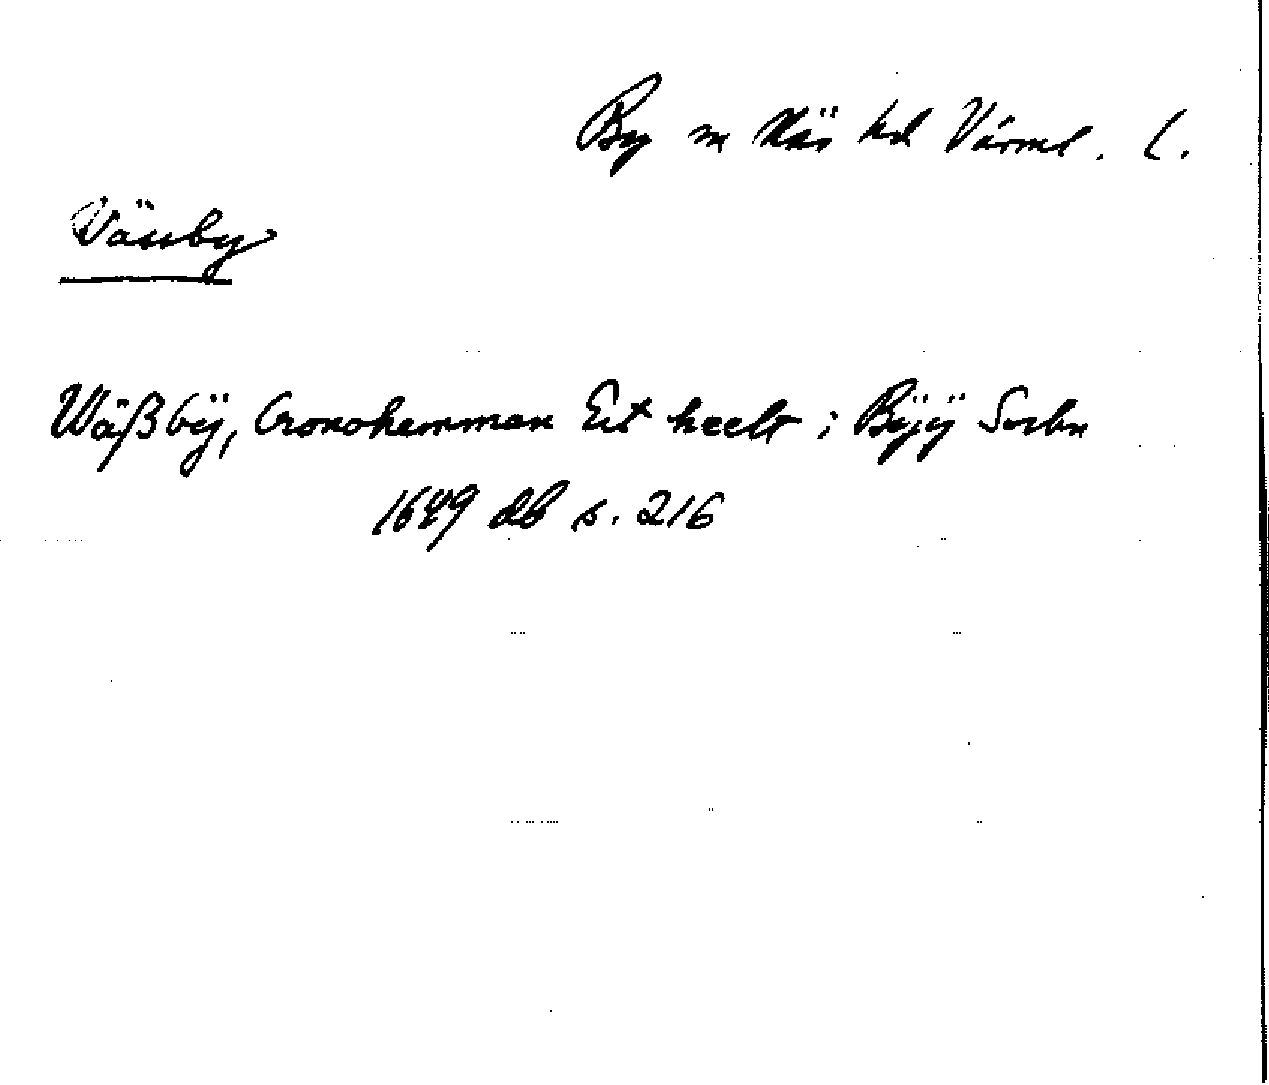 By sn Näs hd Värml. l.
Väsby
Wäßbÿ, Cronohemman Eit heelt i Bÿÿ Sochn
1649 db s. 216